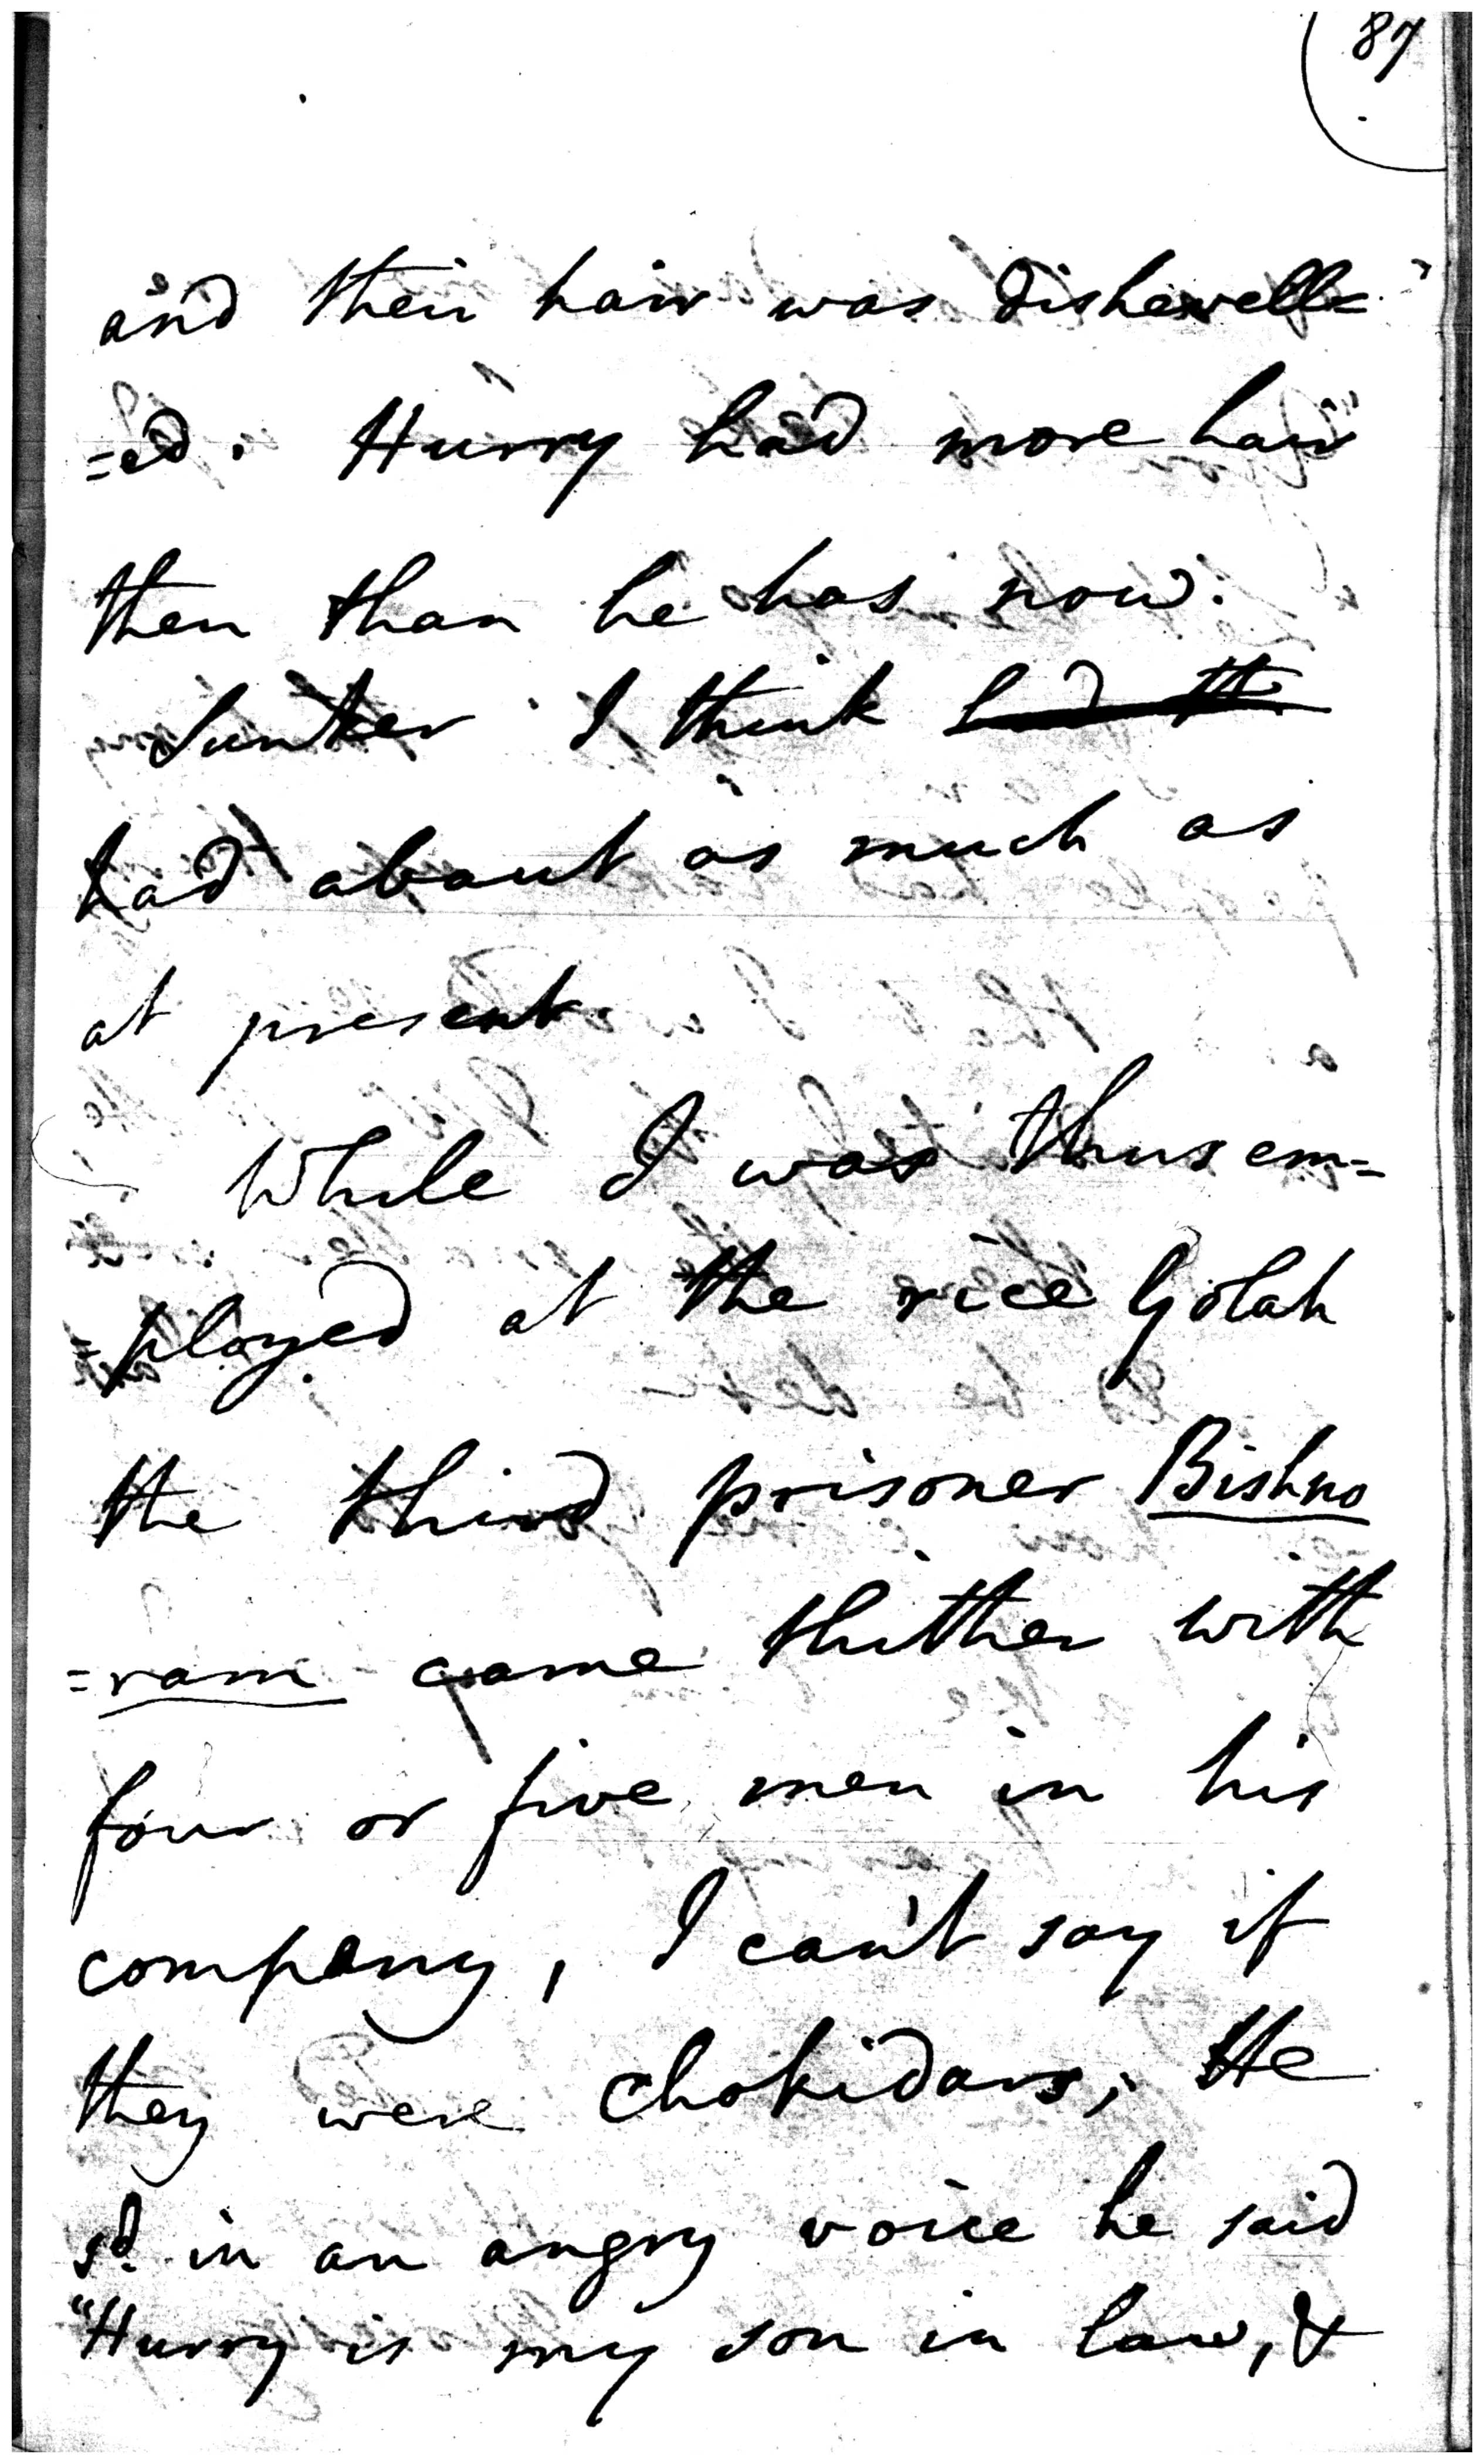 87
and their hair was dishevell=
=ed. Hurry had more hair
then than he has now.
Sunker I think had th
had about as much as
at present.
While I was thus em=
=ployed at the rice Golah
the third prisoner Bishno
=ram came thither with
four or five men in his
company, I can't say if
they were Chokidars; He
sd. in an angry voice he said
"Hurry is my son in law, &